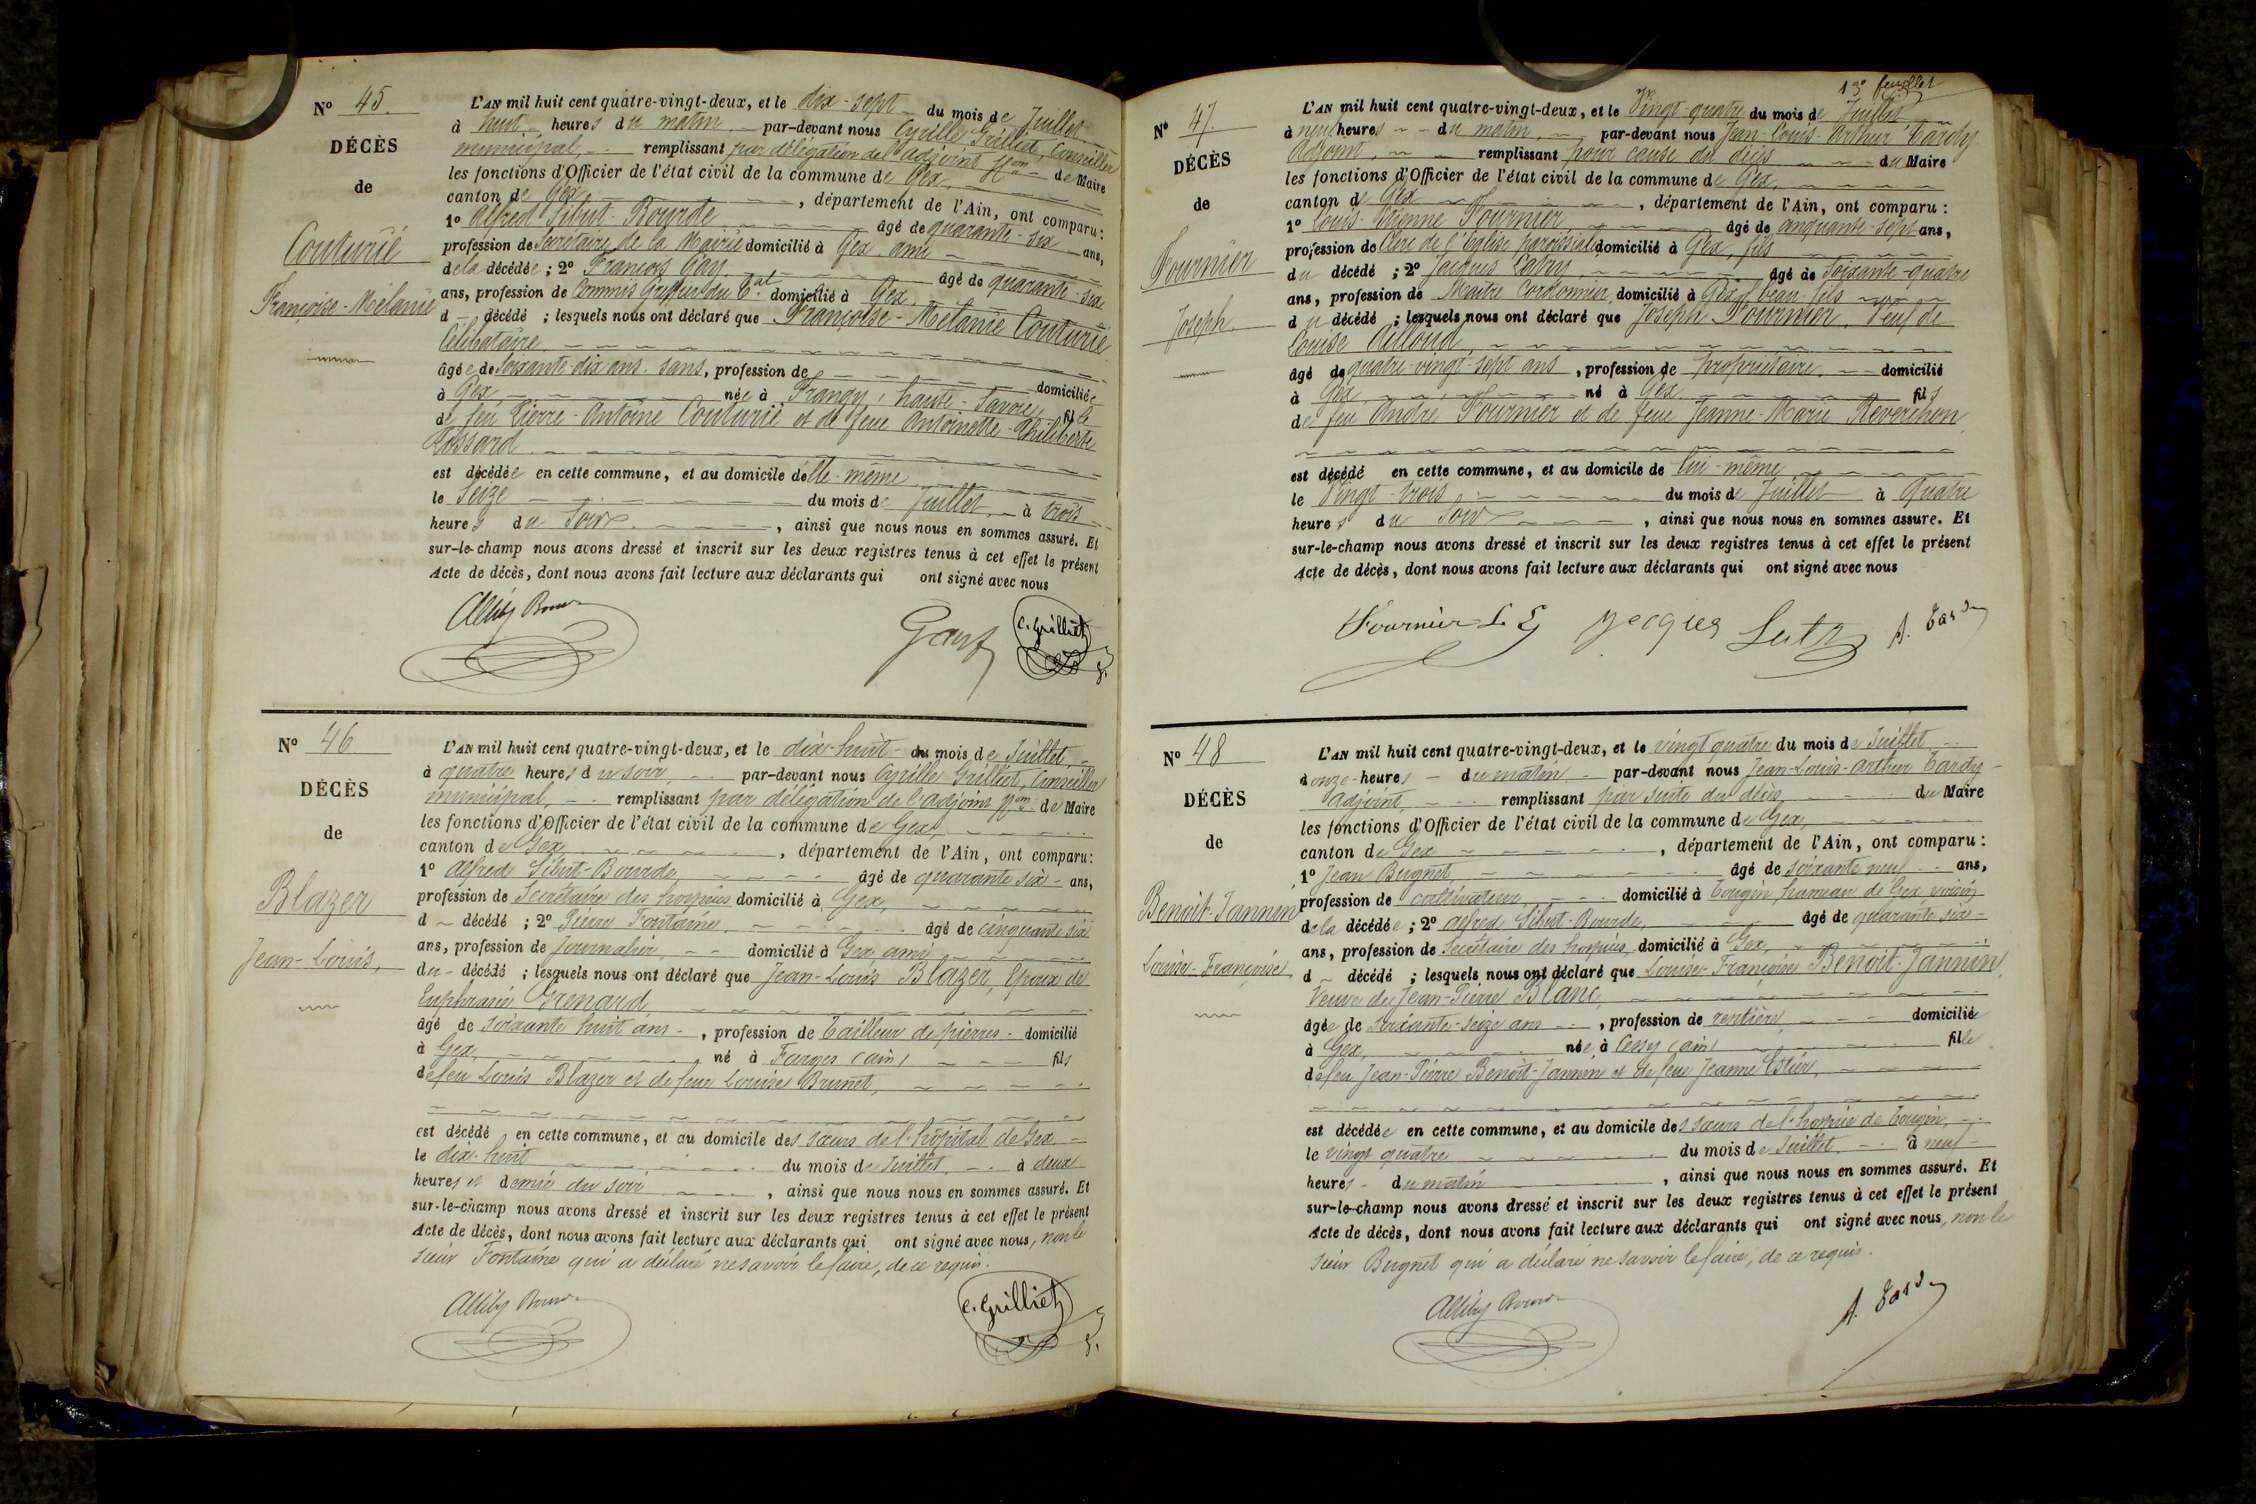 Nº 45.
DÉCÈS
de
Couturié
Françoise-Mélanie
L'AN mil huit cent quatre-vingt-deux, et le dix-sept du mois de Juillet
à huit heures du matin, par-devant nous Cyrille Grilliet, Conseiller
municipal, remplissant par délégation de l'adjoint ffon de Maire
les fonctions d'Officier de l'état civil de la commune de Gex,
canton de Gex, département de l'Ain, ont comparu :
1º Alfred Sibut-Bourde âgé de quarante-six ans,
profession de Secrétaire de la Mairie domicilié à Gex, ami
de la décédée ; 2º François Gay, âgé de quarante-six
ans, profession de Commis Greffier du Tal domicilié à Gex,
d décédé ; lesquels nous ont déclaré que Françoise-Mélanie Couturié
Célibataire
âgée de soixante-dix ans, sans, profession de domiciliée
à Gex, née à Frangy, haute-Savoie, fille
de feu Pierre-Antoine Couturié et de feue Antoinette-Philiberte
Dossard
est décédée en cette commune, et au domicile d'elle-même
le Seize du mois de Juillet, à trois
heures du Soir, ainsi que nous nous en sommes assuré. Et
sur-le-champ nous avons dressé et inscrit sur les deux registres tenus à cet effet le présent
Acte de décès, dont nous avons fait lecture aux déclarants qui ont signé avec nous
Gay
C. Grilliet
Nº 46
DÉCÈS
de
Blazer
Jean-Louis,
L'AN mil huit cent quatre-vingt-deux, et le dix-huit du mois de Juillet,
à quatre heures du soir, par-devant nous Cyrille Grilliet, Conseiller
municipal, remplissant par délégation de l'adjoint ffon de Maire
les fonctions d'Officier de l'état civil de la commune de Gex,
canton de Gex, département de l'Ain, ont comparu :
1º Alfred Sibut-Bourde âgé de quarante six ans,
profession de Secrétaire des hospices domicilié à Gex,
d décédé ; 2º Pierre Fontaine, âgé de cinquante six
ans, profession de Journalier, domicilié à Gex, ami
du décédé ; lesquels nous ont déclaré que Jean-Louis Blazer, Epoux de
Euphrasie Grenard
âgé de soixante huit ans, profession de Tailleur de pierres domicilié
à Gex, né à Farges (ain) fils
de feu Louis Blazer et de feue Louise Brunet,
est décédé en cette commune, et au domicile des sœurs de l'hôpital de Gex,
le dix-huit du mois de Juillet, à deux
heures et demie du soir, ainsi que nous nous en sommes assuré. Et
sur-le-champ nous avons dressé et inscrit sur les deux registres tenus à cet effet le présent
Acte de décès, dont nous avons fait lecture aux déclarants qui ont signé avec nous, non le
sieur Fontaine qui a déclaré ne savoir le faire, de ce requis.
C. Grilliet
13e feuillet
Nº 47.
DÉCÈS
de
Fournier
Joseph
L'AN mil huit cent quatre-vingt-deux, et le Vingt-quatre du mois de Juillet
à neuf heures du matin, par-devant nous Jean-Louis-Arthur Tardy
adjoint, remplissant pour cause du décès du Maire
les fonctions d'Officier de l'état civil de la commune de Gex,
canton de Gex, département de l'Ain, ont comparu :
1º Louis-Etienne Fournier, âgé de cinquante-sept ans,
profession de Clerc de l'Eglise paroissiale domicilié à Gex, fils
du décédé ; 2º Jacques âgé de soixante-quatre
ans, profession de Maître Cordonnier, domicilié à Gex, beau-fils
du décédé ; lesquels nous ont déclaré que Joseph Fournier, Veuf de
Louise Dilloud,
âgé de quatre-vingt-sept ans, profession de propriétaire, domicilié
à Gex, né à Gex, fils
de feu André Fournier et de feue Jeanne-Marie Reverchon,
est décédé en cette commune, et au domicile de lui-même
le Vingt-trois du mois de Juillet à Quatre
heures du Soir, ainsi que nous nous en sommes assuré. Et
sur-le-champ nous avons dressé et inscrit sur les deux registres tenus à cet effet le présent
Acte de décès, dont nous avons fait lecture aux déclarants qui ont signé avec nous
Fournier L E Jacques A. Tardy
Nº 48
DÉCÈS
de
Benoit-Jannin
Louise-Françoise,
L'AN mil huit cent quatre-vingt-deux, et le vingt quatre du mois de Juillet
à onze heures du matin, par-devant nous Jean-Louis-Arthur Tardy
adjoint, remplissant par suite du décès du Maire
les fonctions d'Officier de l'état civil de la commune de Gex,
canton de Gex, département de l'Ain, ont comparu :
1º Jean Bugnet, âgé de soixante neuf ans,
profession de cultivateur domicilié à Tougin, hameau de Gex, voisin
de la décédée ; 2º Alfred Sibut-Bourde, âgé de quarante six
ans, profession de Secrétaire des hospices, domicilié à Gex,
d décédé ; lesquels nous ont déclaré que Louise-Françoise Benoit-Jannin,
Veuve de Jean-Pierre Blanc,
âgée de soixante-seize ans, profession de rentière, domiciliée
à Gex, née à Cessy (ain) fille
de feu Jean-Pierre Benoît-Jannin et de feue Jeanne Estier,
est décédée en cette commune, et au domicile des sœurs de l'hospice de Tougin,
le vingt quatre du mois de Juillet, à neuf
heures du matin, ainsi que nous nous en sommes assuré. Et
sur-le-champ nous avons dressé et inscrit sur les deux registres tenus à cet effet le présent
Acte de décès, dont nous avons fait lecture aux déclarants qui ont signé avec nous, non le
sieur Bugnet qui a déclaré ne savoir le faire, de ce requis.
A. Tardy